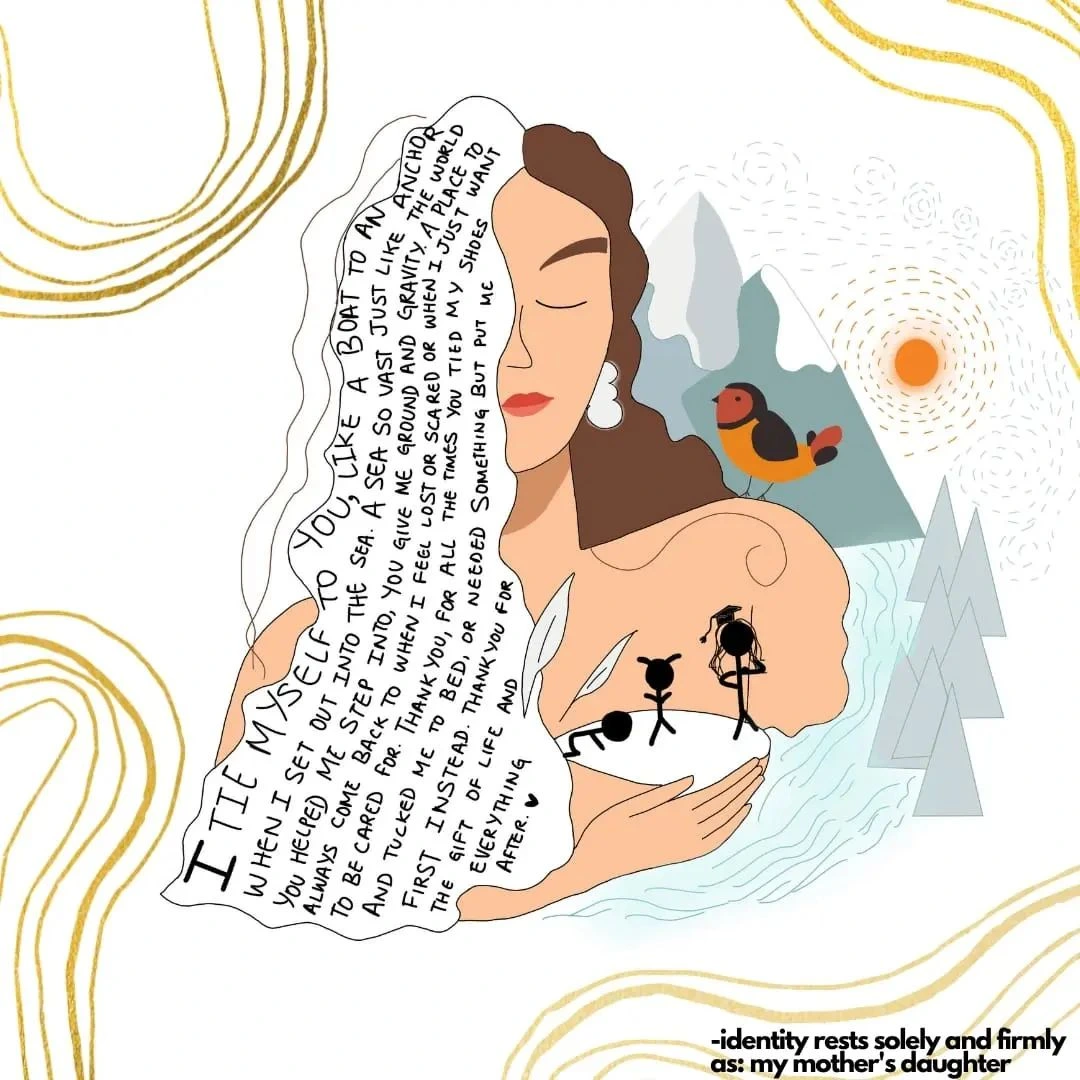 I TIE MYSELF TO YOU, LIKE A BOAT TO AN ANCHOR
WHEN I SET OUT INTO THE SEA. A SEA SO VAST JUST LIKE THE WORLD
YOU HELPED ME STEP INTO, YOU GIVE ME GROUND AND GRAVITY. A PLACE TO
ALWAYS COME BACK TO WHEN I FEEL LOST OR SCARED OR WHEN I JUST WANT
TO BE CARED FOR. THANK YOU, FOR ALL THE TIMES YOU TIED MY SHOES
AND TUCKED ME TO BED, OR NEEDED SOMETHING BUT PUT ME
FIRST INSTEAD. THANK YOU FOR
THE GIFT OF LIFE AND
EVERYTHING
AFTER. ♥
-identity rests solely and firmly
as: my mother's daughter